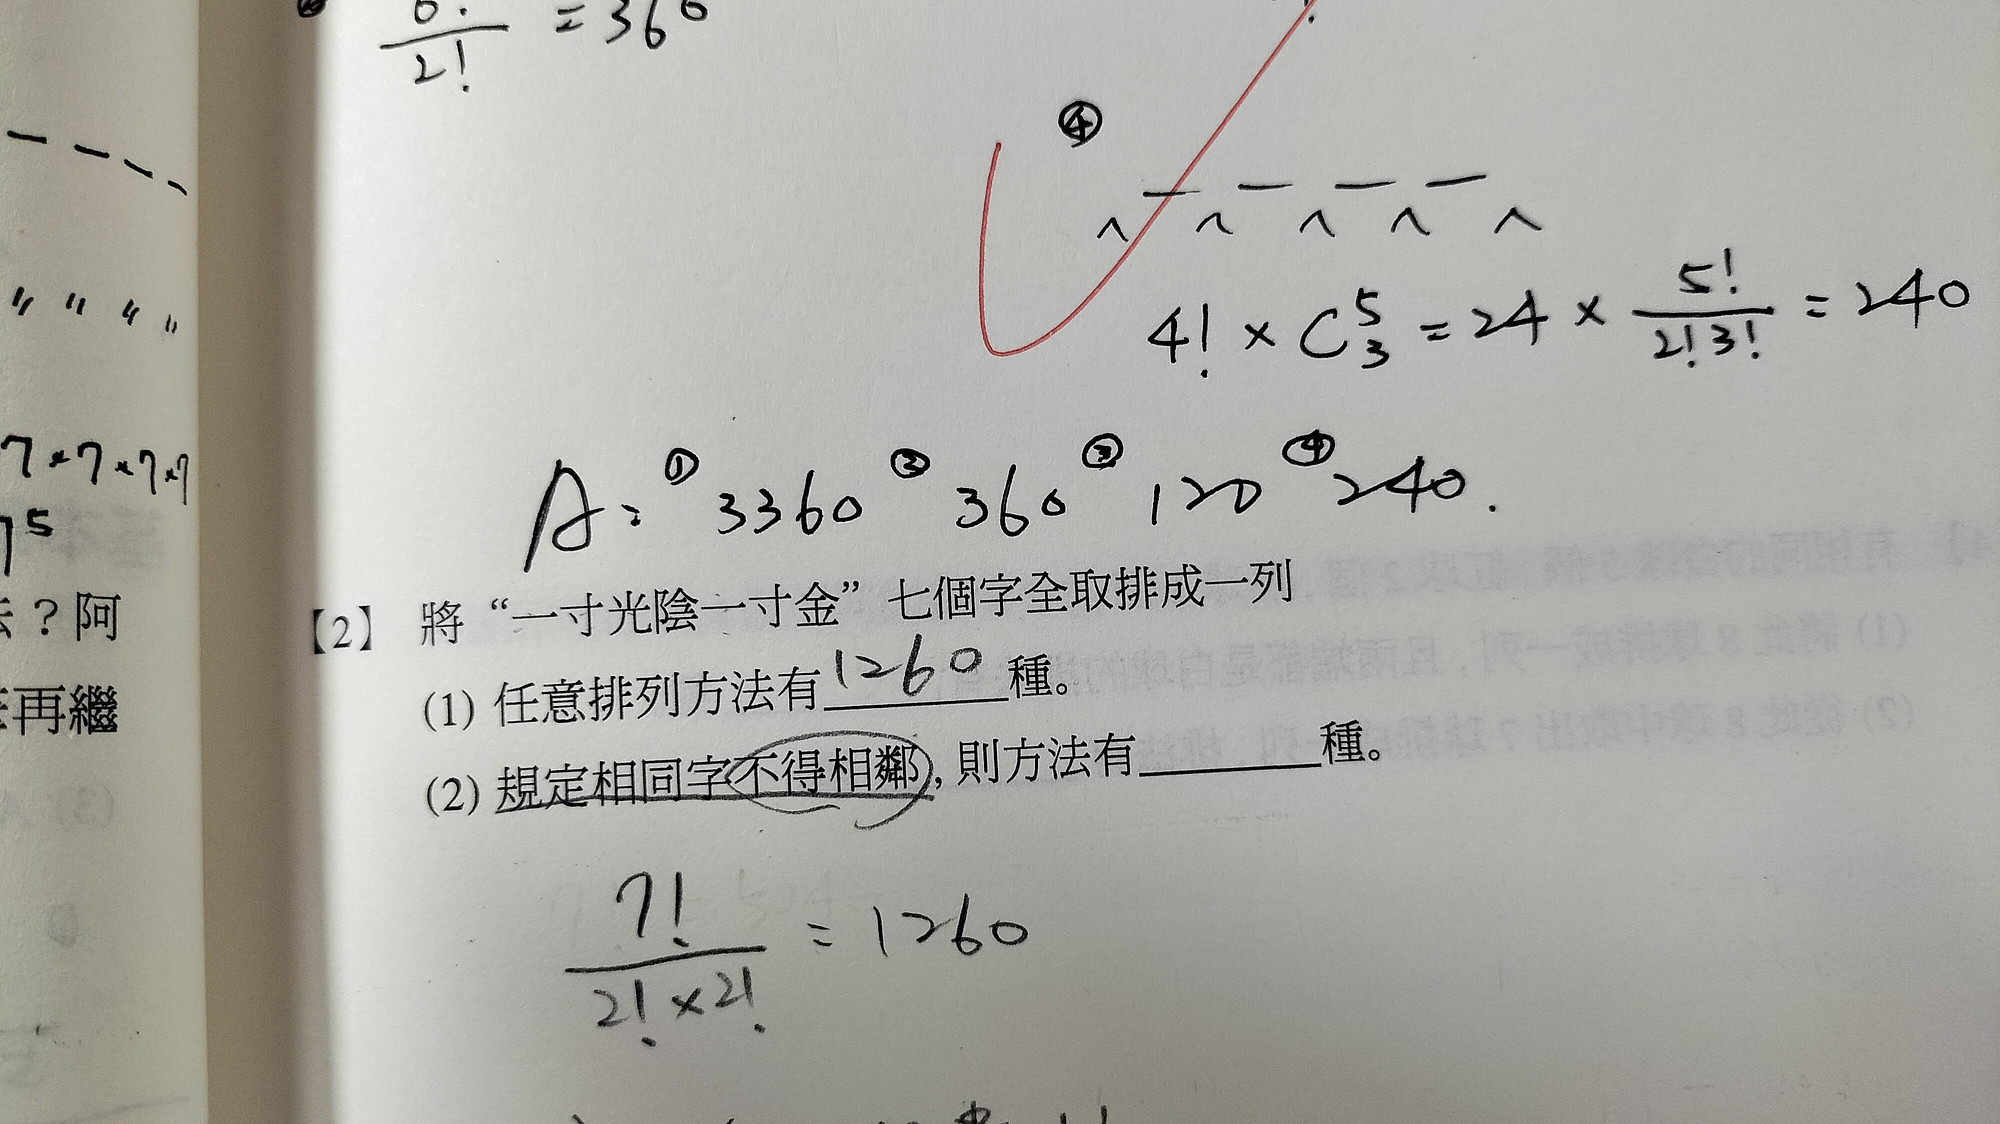 6!
2! = 360
④
4! × C⁵₃ = 24 × 5!/2!3! = 240
7×7×7×7
7⁵
A: ① 3360 ② 360 ③ 120 ④ 240.
法？阿
再繼
【2】 將“一寸光陰一寸金”七個字全取排成一列
(1) 任意排列方法有1260種。
(2) 規定相同字不得相鄰, 則方法有______種。
7!/2!×2! = 1260